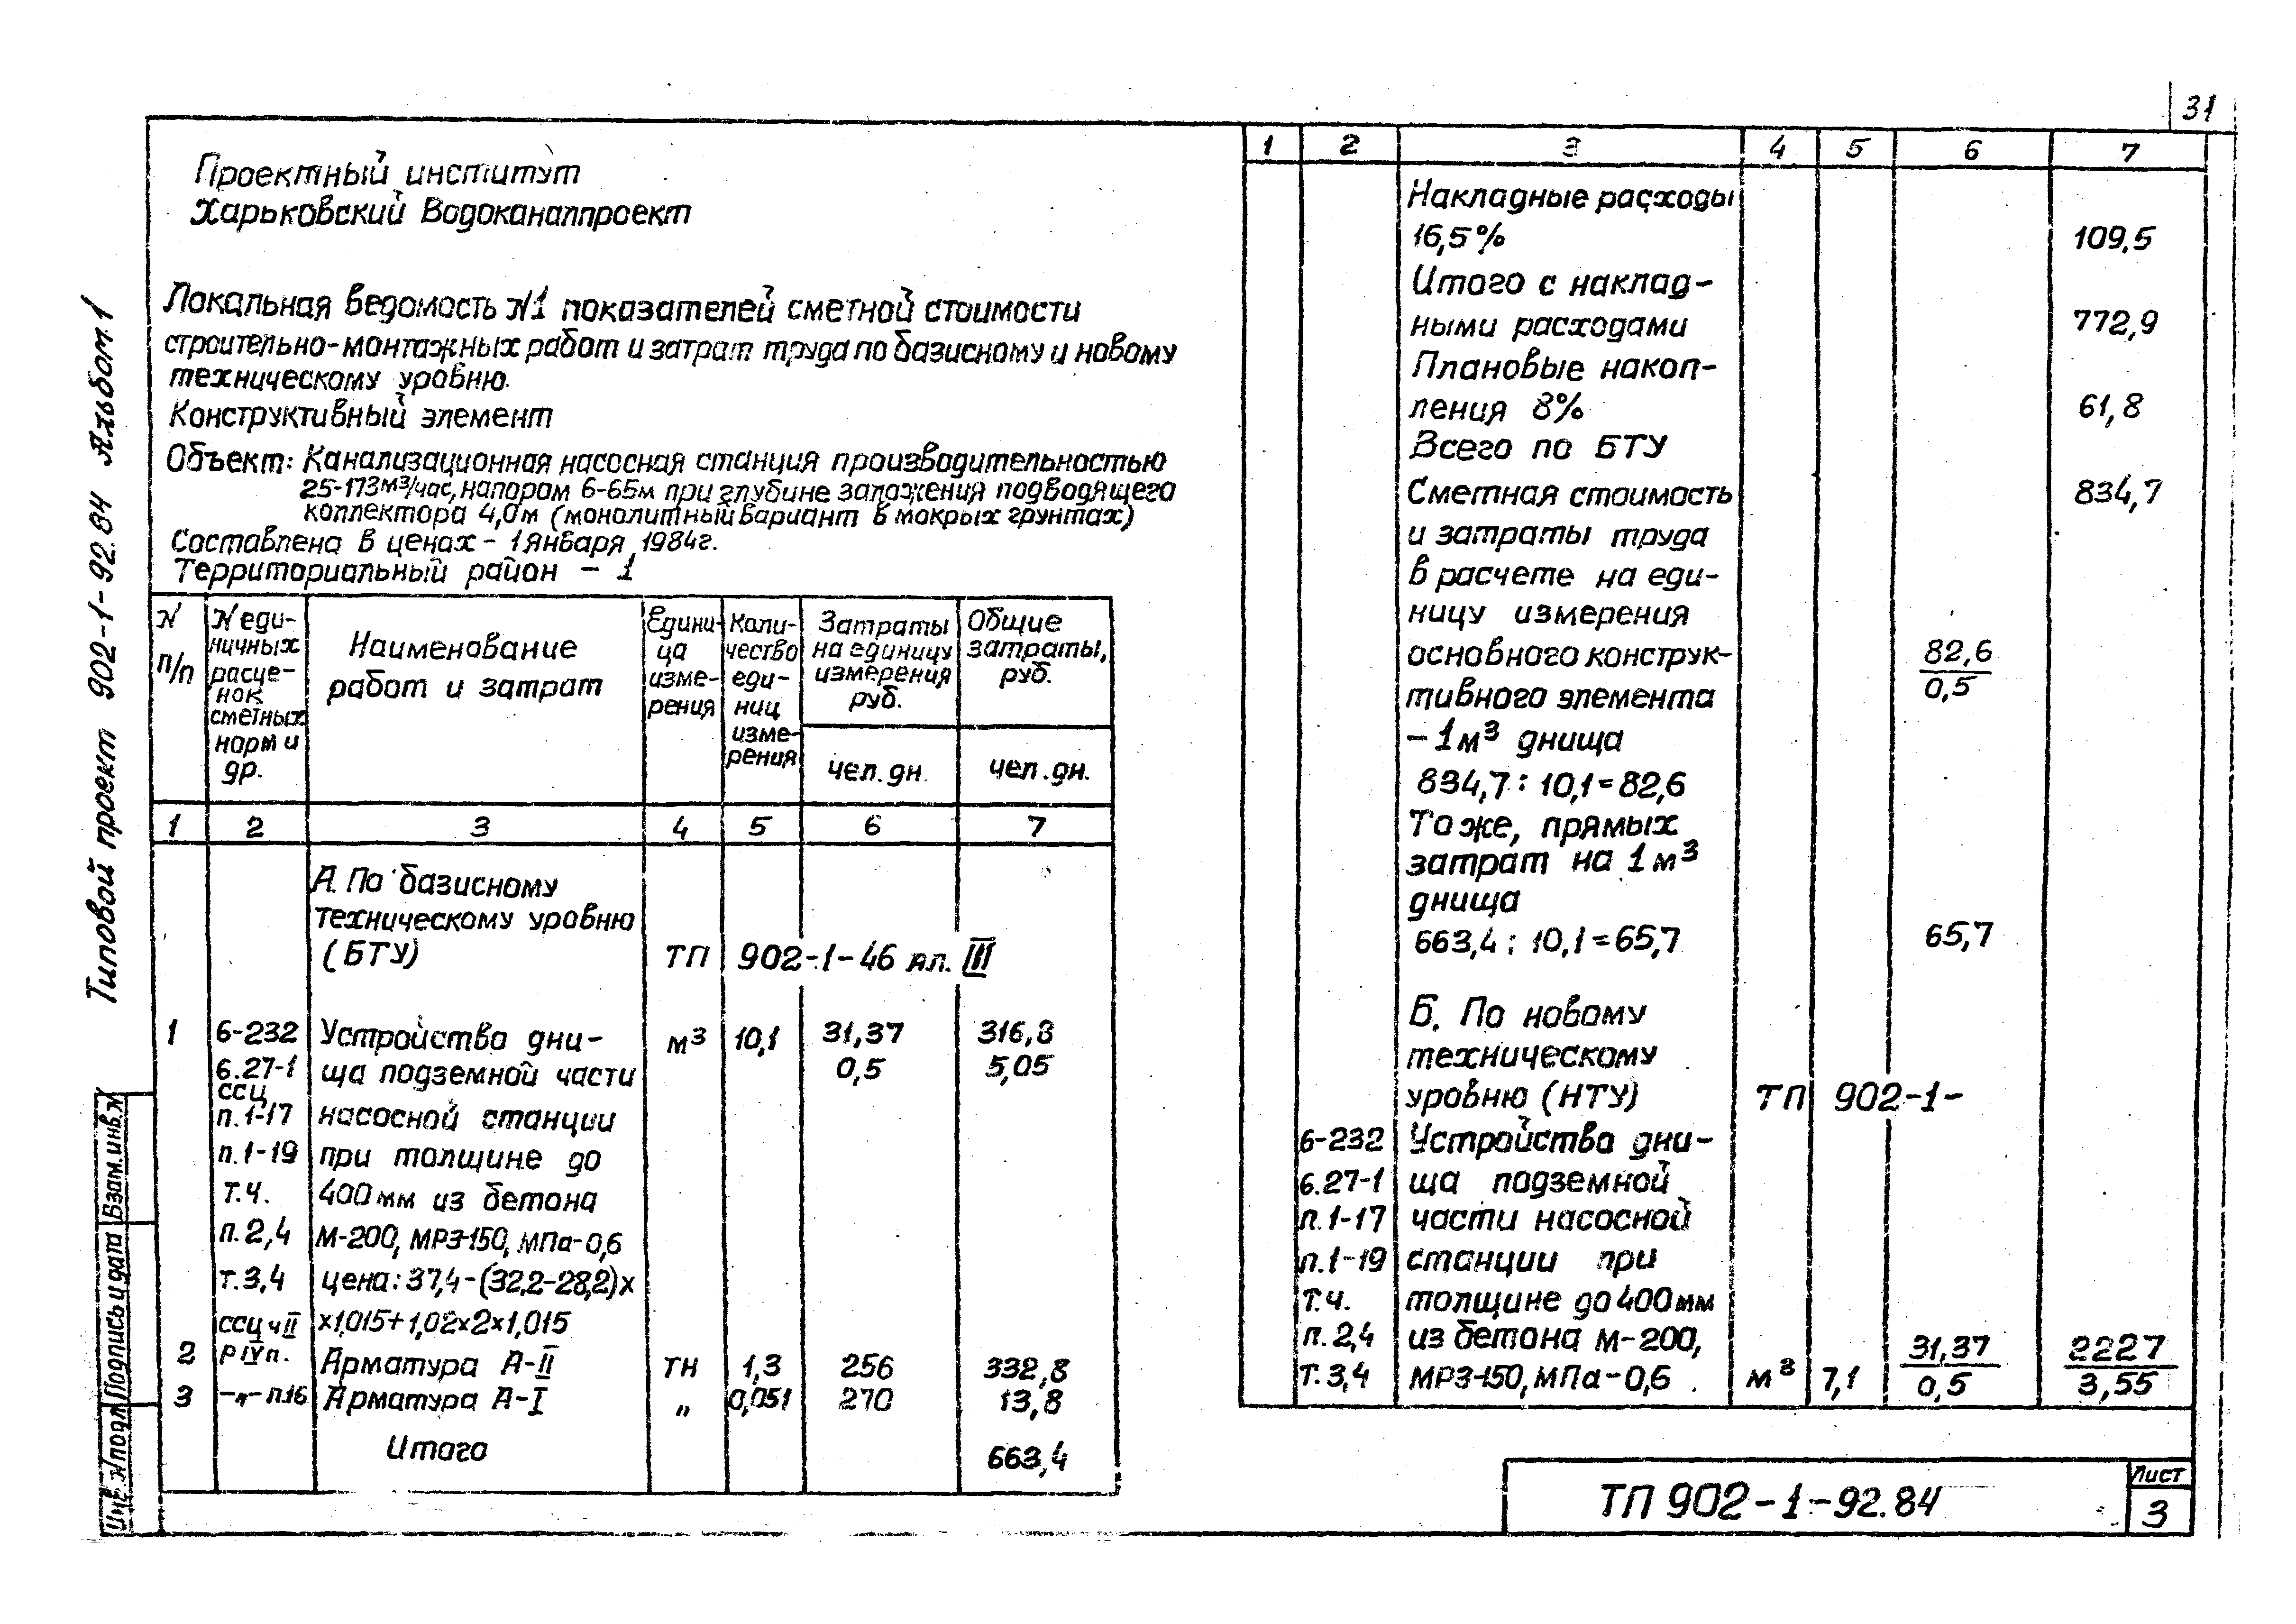 31
Типовой проект 902-1-92.84 Альбом 1
Проектный институт
Харьковский Водоканалпроект
Локальная ведомость N1 показателей сметной стоимости
строительно-монтажных работ и затрат труда по базисному и новому
техническому уровню.
Конструктивный элемент
Объект: Канализационная насосная станция производительностью
25-173м³/час, напором 6-65м при глубине заложения подводящего
коллектора 4,0м (монолитный вариант в мокрых грунтах)
Составлена в ценах - 1 января 1984г.
Территориальный район - 1
N п/п | N единичных расценок сметных норм и др. | Наименование работ и затрат | Единица измерения | Количество единиц измерения | Затраты на единицу измерения руб. | Общие затраты, руб.
чел.дн. | чел.дн.
1 2 3 4 5 6 7
А. По базисному
техническому уровню
(БТУ) ТП 902-1-46 ал. III
1 6-232 Устройство дни- м³ 10,1 31,37 316,8
6.27-1 ща подземной части 0,5 5,05
ссц
п.1-17 насосной станции
п.1-19 при толщине до
т.ч. 400мм из бетона
п.2,4 М-200, МРЗ-150, МПа-0,6
т.3,4 цена: 37,4-(32,2-28,2)х
ссц ч II х1,015+1,02х2х1,015
2 р IV п. Арматура А-II тн 1,3 256 332,8
3 -„- п.16 Арматура А-I „ 0,051 270 13,8
Итого 663,4
1 2 3 4 5 6 7
Накладные расходы
16,5% 109,5
Итого с наклад-
ными расходами 772,9
Плановые накоп-
ления 8% 61,8
Всего по БТУ
Сметная стоимость 834,7
и затраты труда
в расчете на еди-
ницу измерения
основного конструк- 82,6
тивного элемента 0,5
- 1м³ днища
834,7 : 10,1=82,6
То же, прямых
затрат на 1м³
днища
663,4 : 10,1=65,7 65,7
Б. По новому
техническому
уровню (НТУ) ТП 902-1-
6-232 Устройство дни-
6.27-1 ща подземной
п.1-17 части насосной
п.1-19 станции при
т.ч. толщине до 400мм
п.2,4 из бетона М-200, 31,37 2227
т.3,4 МРЗ-150, МПа-0,6 . м³ 7,1 0,5 3,55
ТП 902-1-92.84
Лист
3
Взам.инв.N
Подпись и дата
Инв.N подл